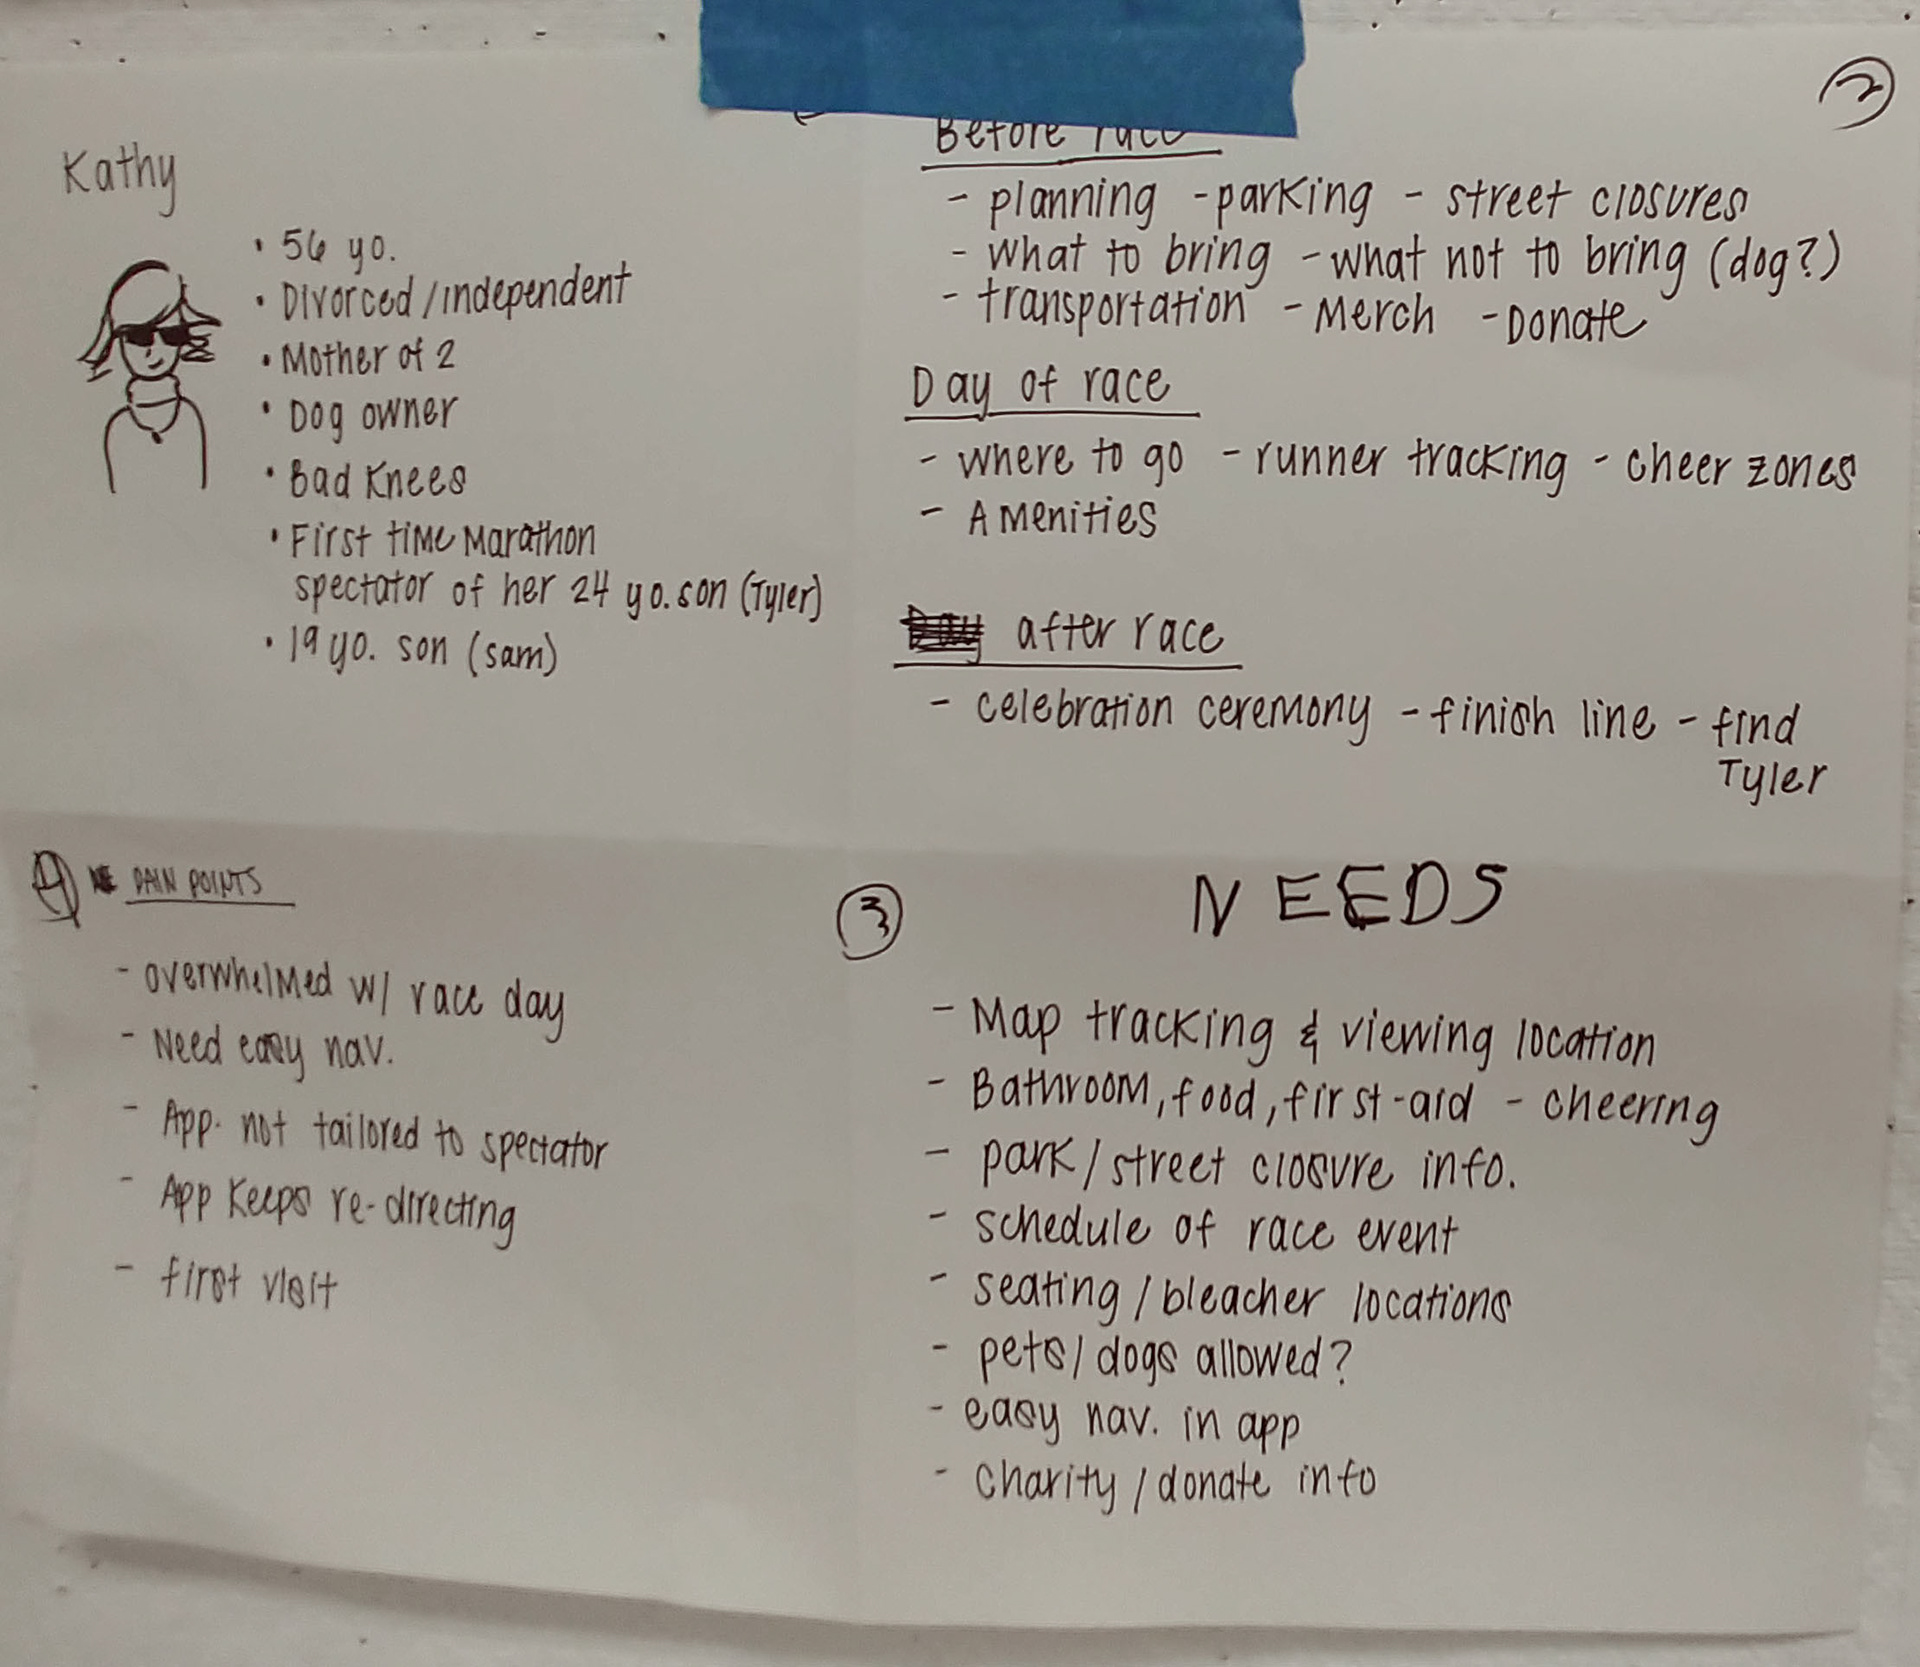 Kathy
• 56 yo.
• Divorced/independent
• Mother of 2
• Dog owner
• Bad Knees
• First time Marathon
spectator of her 24 yo. son (Tyler)
• 19 yo. son (sam)
2
Before race
- planning - parking - street closures
- what to bring - what not to bring (dog?)
- transportation - Merch - Donate
Day of race
- where to go - runner tracking - cheer zones
- Amenities
after race
- celebration ceremony - finish line - find
Tyler
3
NEEDS
- Map tracking & viewing location
- Bathroom, food, first-aid - cheering
- park/street closure info.
- schedule of race event
- seating/bleacher locations
- pets/dogs allowed?
- easy nav. in app
- charity/donate info
4 PAIN POINTS
- overwhelmed w/ race day
- Need easy nav.
- App. not tailored to spectator
- App keeps re-directing
- first visit